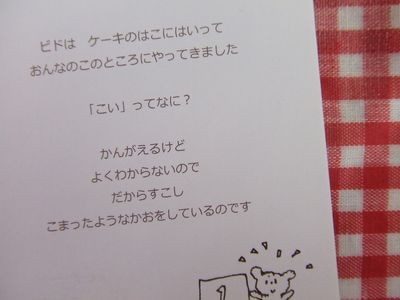 ピドは　ケーキのはこにはいって
おんなのこのところにやってきました
「こい」ってなに？
かんがえるけど
よくわからないので
だからすこし
こまったようなかおをしているのです
1